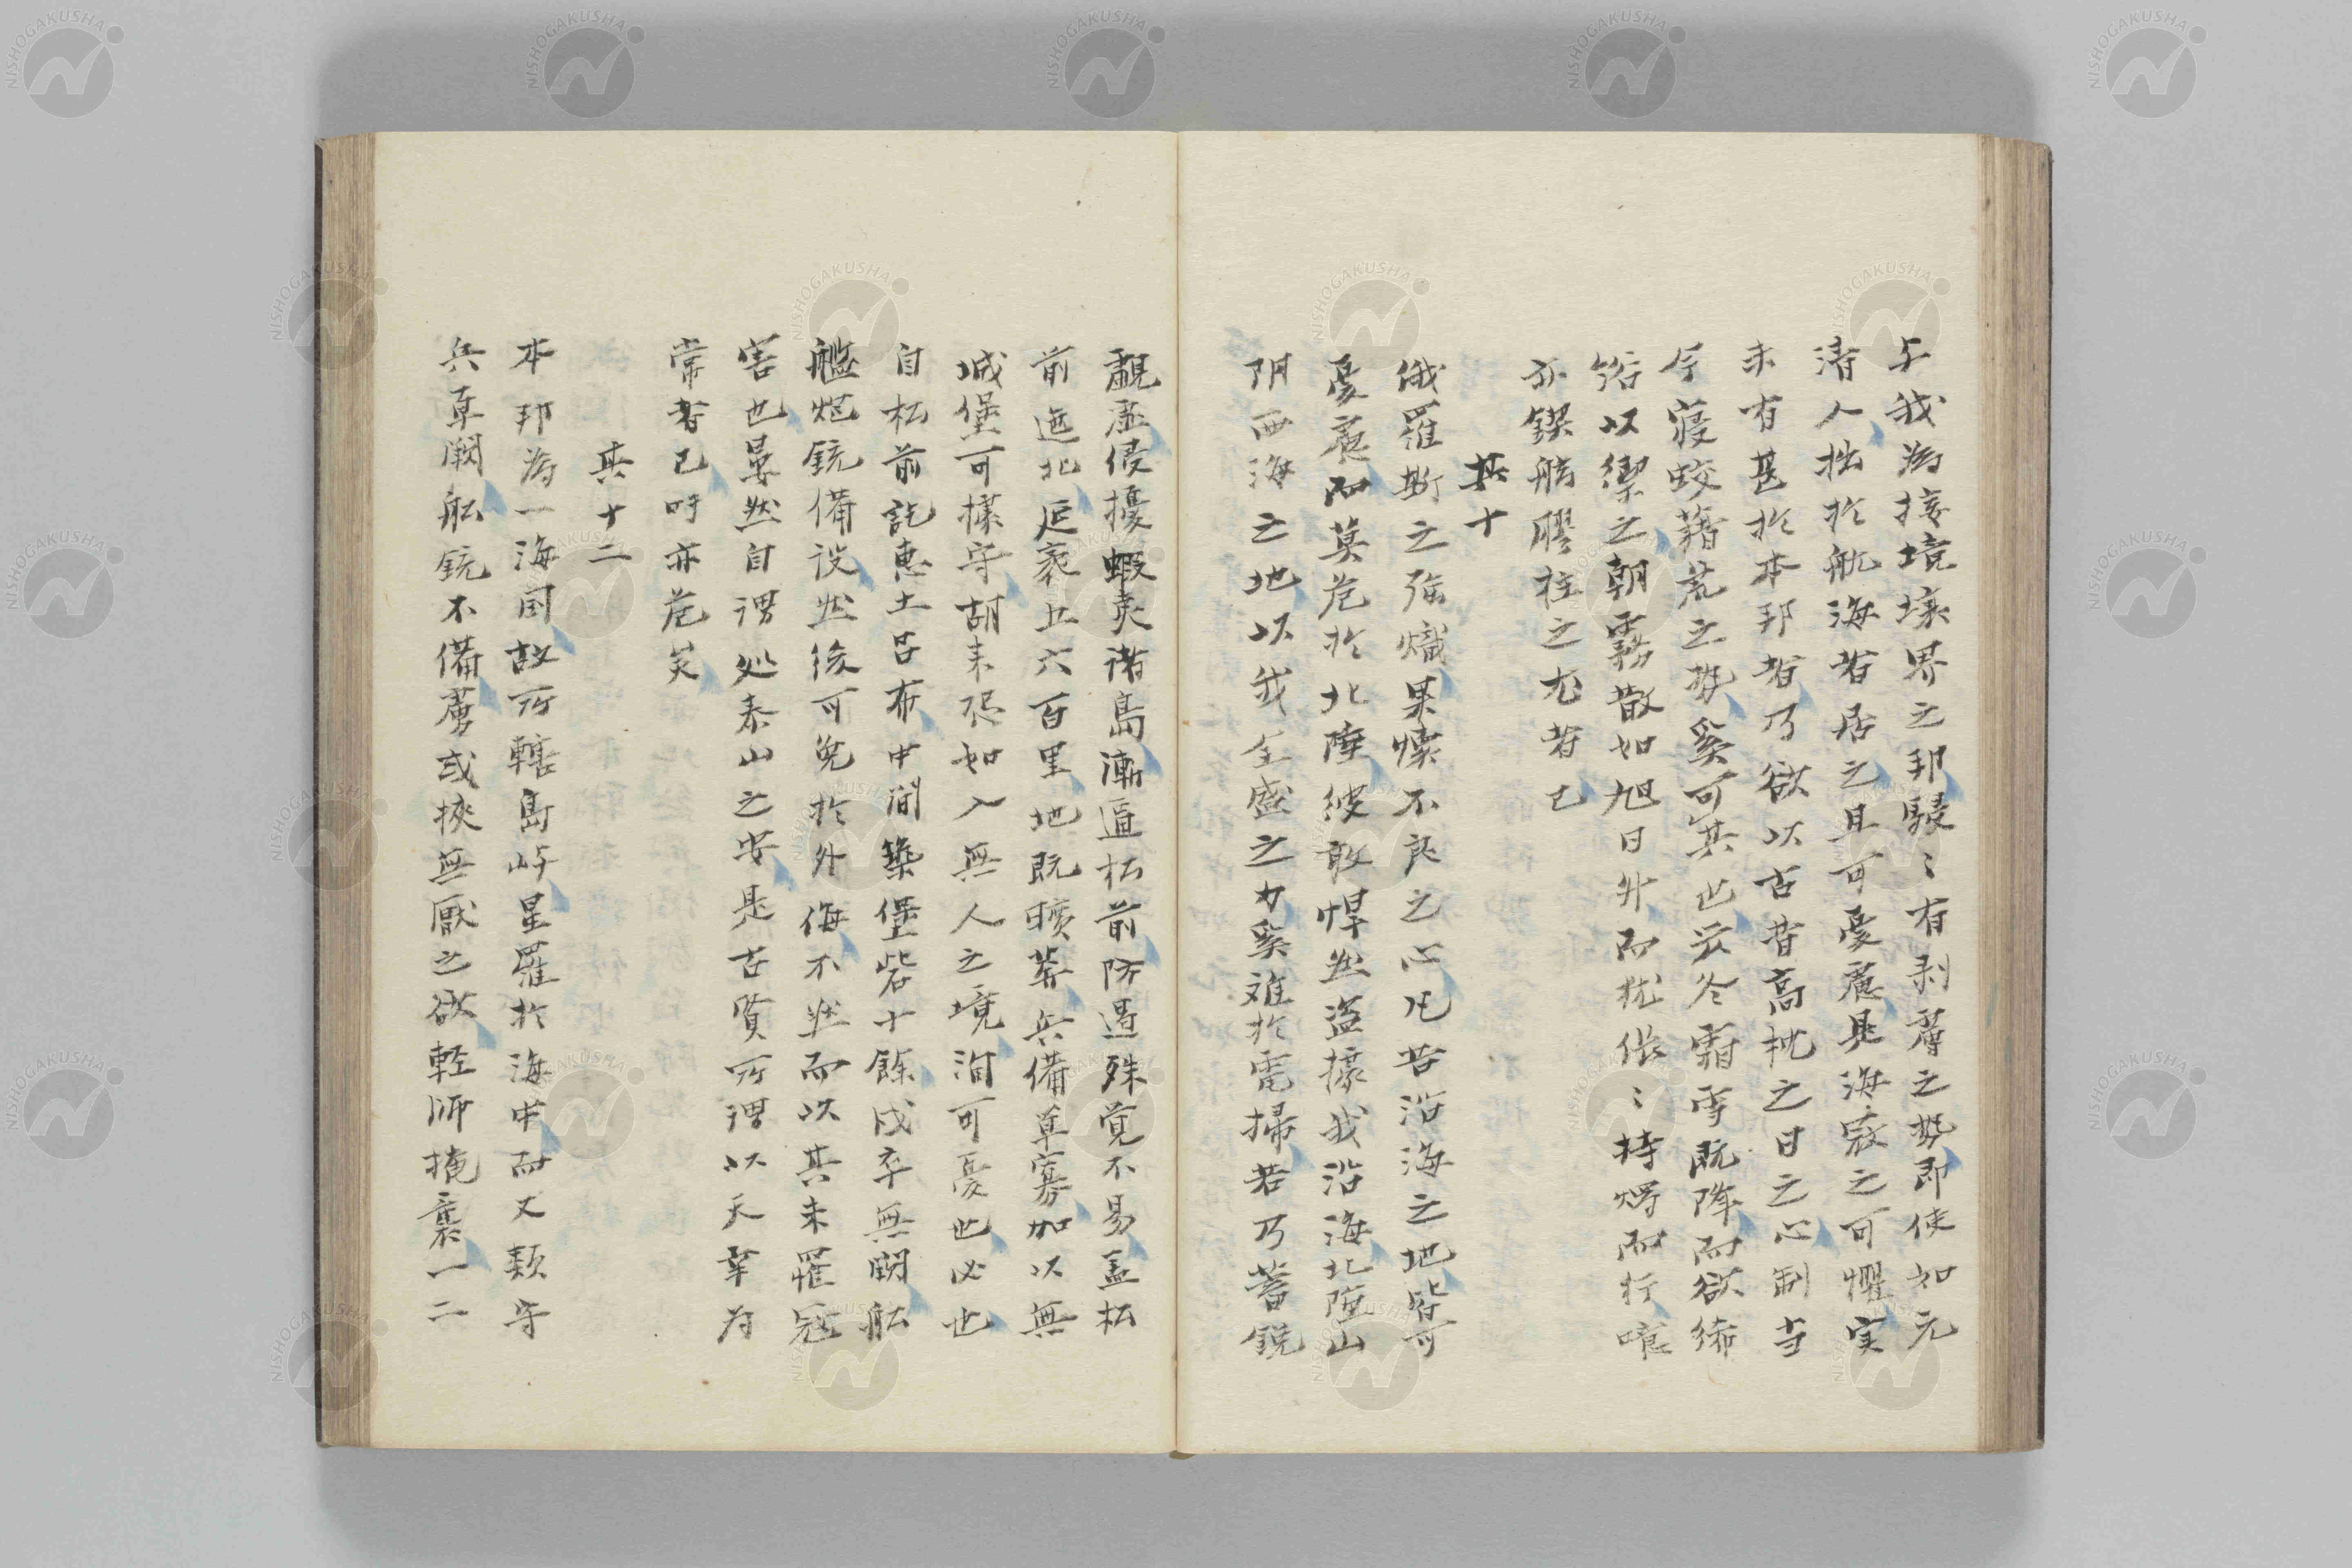 与我為接境壌界之邦駸〻有剥蓐之勢即使如元
清人拙於航海者居之且可憂慮是海寇之可懼実
未有甚於本邦者乃欲以古昔高枕之日之心制当
今寝蛟藉荒之勢奚可其也云冬霜雪既降而欲絺
綌以禦之朝霧散如旭日升而猶倀〻持燭而行噫
亦鍥舷膠柱之尤者已
其十
俄羅斯之強熾果懍不良之心凡苦沿海之地皆可
憂慮而莫危於北陲彼敢悍然盗據我沿海北陲山
阴西海之地以我全盛之力奚难於電掃若乃蓄鋭
覼虚侵擾蝦夷諸島漸逼松前防遏殊覚不易盖松
前迤北延袤五六百里地既曠莽兵備単寡加以無
城堡可據守胡来恐如入無人之境洵可憂也必也
自松前訖恵土呂布中間築堡砦十餘戍卒無闕舩
艦炮銃備設然後可免於外侮不然而以其未罹寇
害也晏然自謂処泰山之安是古賢所謂以天幸為
常者已吁亦危矣
其十二
本邦為一海国故所轄島屿星羅於海中而又頼守
兵単闕舩銃不備虜或挾無厭之欲軽師掩襲一二